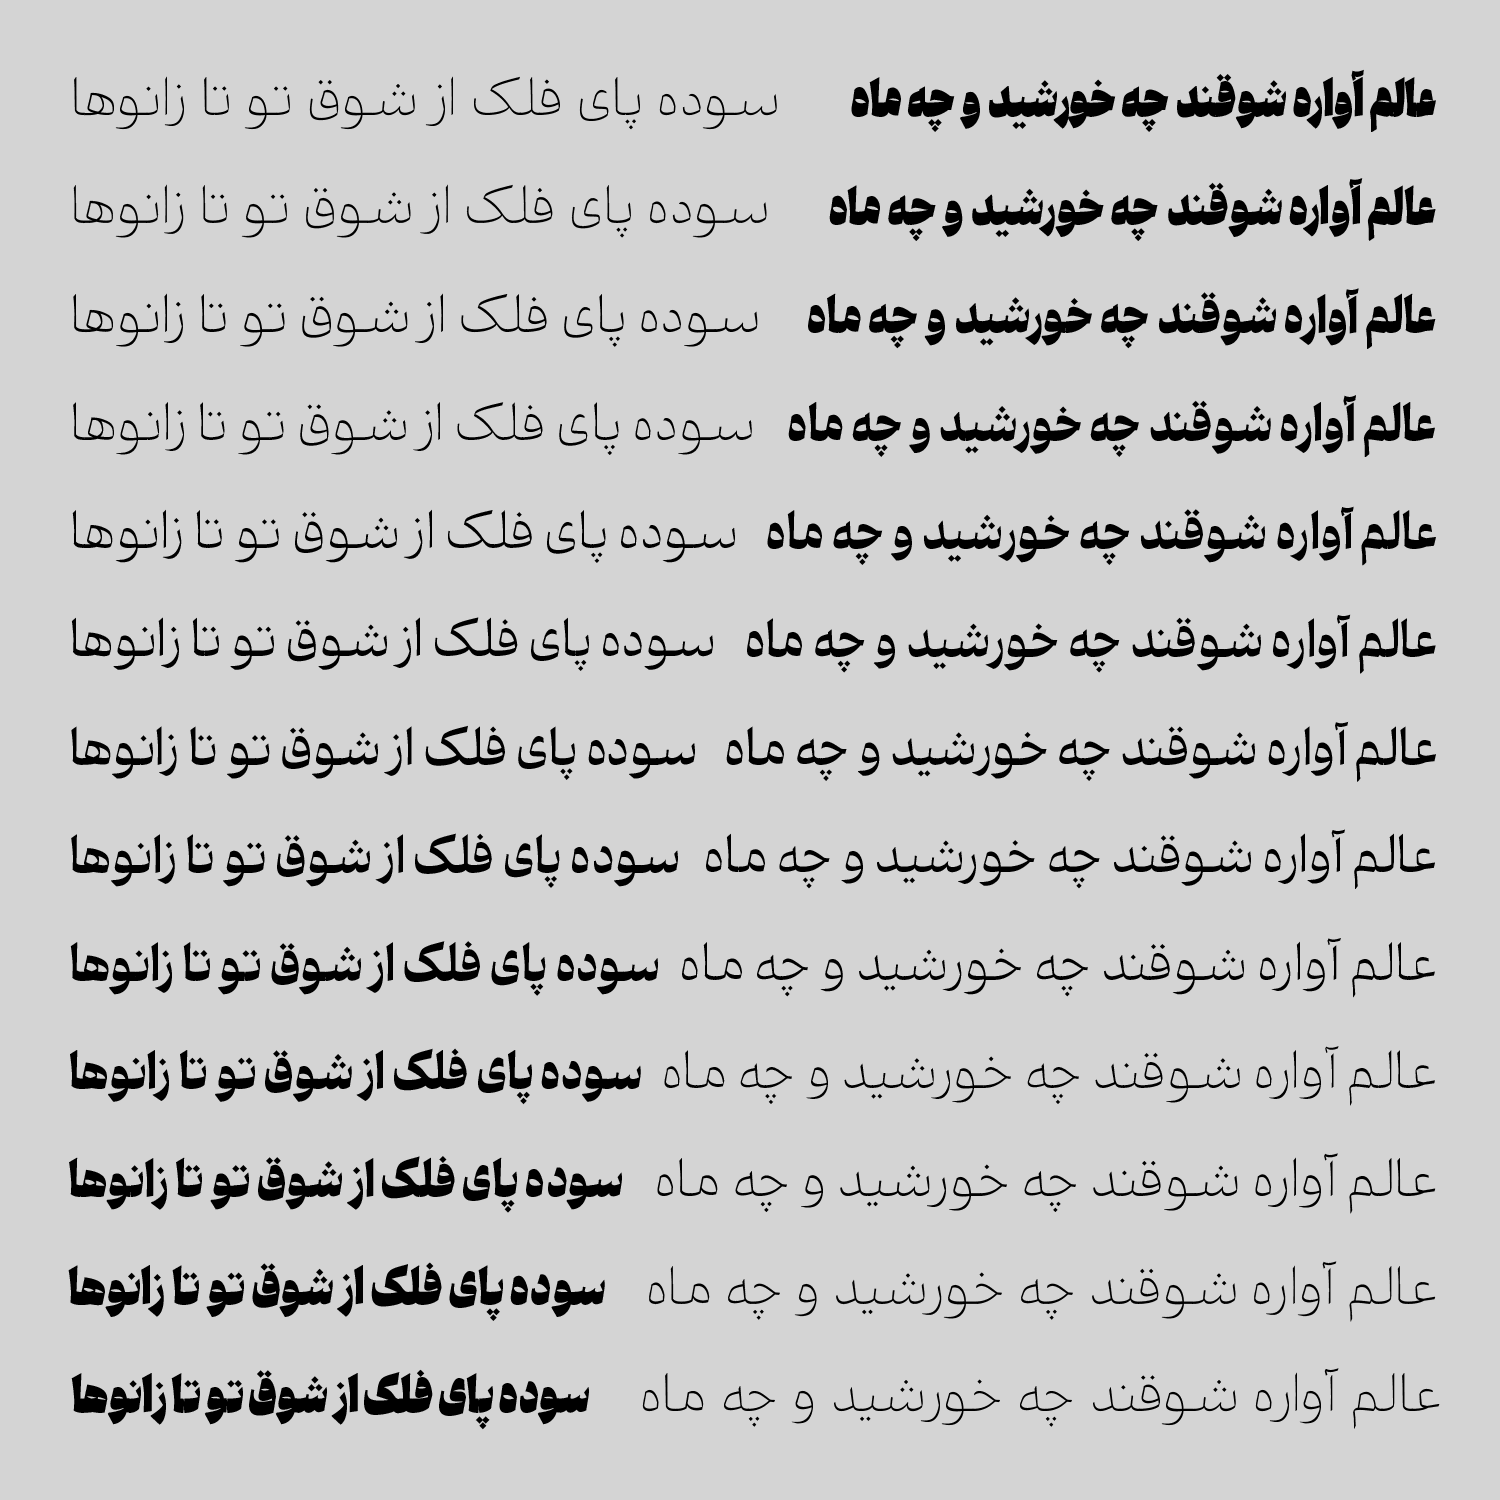 عالم آواره شوقند چه خورشید و چه ماه سوده پای فلک از شوق تو تا زانوها
عالم آواره شوقند چه خورشید و چه ماه سوده پای فلک از شوق تو تا زانوها
عالم آواره شوقند چه خورشید و چه ماه سوده پای فلک از شوق تو تا زانوها
عالم آواره شوقند چه خورشید و چه ماه سوده پای فلک از شوق تو تا زانوها
عالم آواره شوقند چه خورشید و چه ماه سوده پای فلک از شوق تو تا زانوها
عالم آواره شوقند چه خورشید و چه ماه سوده پای فلک از شوق تو تا زانوها
عالم آواره شوقند چه خورشید و چه ماه سوده پای فلک از شوق تو تا زانوها
عالم آواره شوقند چه خورشید و چه ماه سوده پای فلک از شوق تو تا زانوها
عالم آواره شوقند چه خورشید و چه ماه سوده پای فلک از شوق تو تا زانوها
عالم آواره شوقند چه خورشید و چه ماه سوده پای فلک از شوق تو تا زانوها
عالم آواره شوقند چه خورشید و چه ماه سوده پای فلک از شوق تو تا زانوها
عالم آواره شوقند چه خورشید و چه ماه سوده پای فلک از شوق تو تا زانوها
عالم آواره شوقند چه خورشید و چه ماه سوده پای فلک از شوق تو تا زانوها